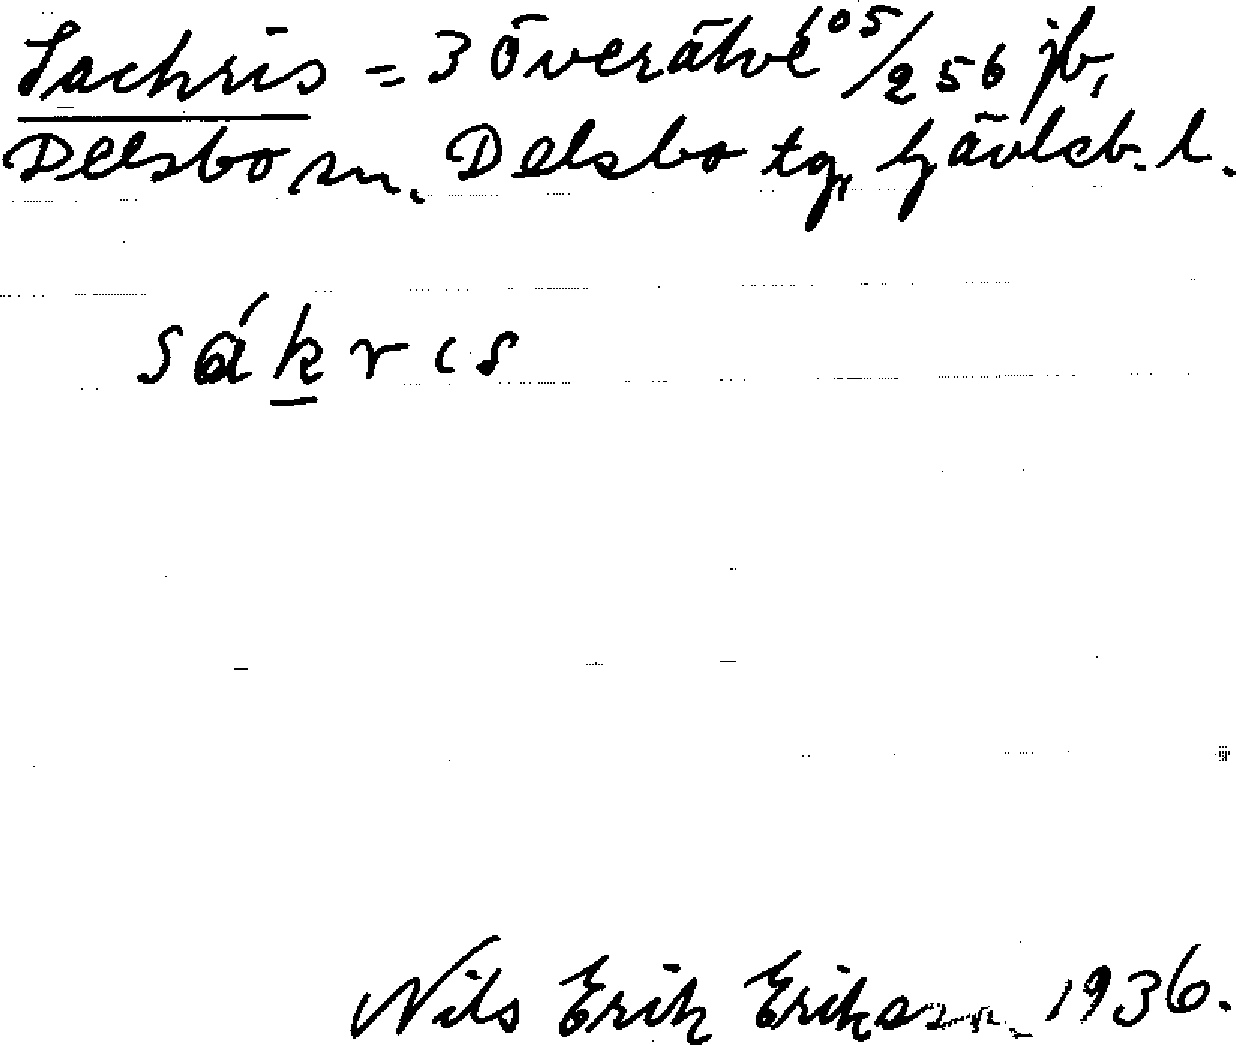 Sachris = 3 Överälve 105/256 jb,
Delsbo sn. Delsbo tg, Gävleb. l.
sákris
Nils Erik Eriksson 1936.